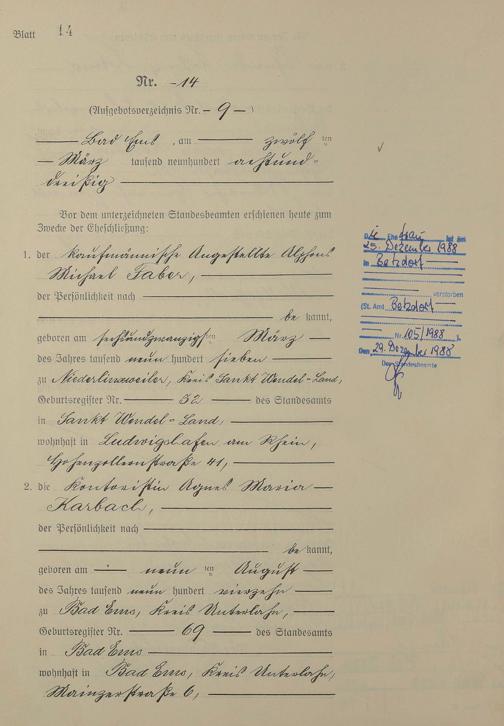 Blatt 14
Nr. 14
(Aufgebotsverzeichnis Nr. 9)
Bad Ems, am zwölften
März tausend neunhundert achtund-
dreißig
Vor dem unterzeichneten Standesbeamten erschienen heute zum
Zwecke der Eheschließung:
1. der kaufmännische Angestellte Alphons
Michael Faber,
der Persönlichkeit nach
bekannt,
geboren am sechsundzwanzigsten März
des Jahres tausend neun hundert sieben
zu Niederlinxweiler, Kreis Sankt Wendel-Land,
Geburtsregister Nr. 52 des Standesamts
in Sankt Wendel-Land,
wohnhaft in Ludwigshafen am Rhein,
Hohenzollernstraße 41,
2. die Kontoristin Agnes Maria
Karbach,
der Persönlichkeit nach
bekannt,
geboren am neunten August
des Jahres tausend neun hundert vierzehn
zu Bad Ems, Kreis Unterlahn,
Geburtsregister Nr. 69 des Standesamts
in Bad Ems
wohnhaft in Bad Ems, Kreis Unterlahn,
Mainzerstraße 6,
Die Ehefrau ist am
25. Dezember 1988
in Betzdorf
verstorben
(St. Amt Betzdorf
Nr. 105/1988).
Den 29. Dezember 1988
Der Standesbeamte